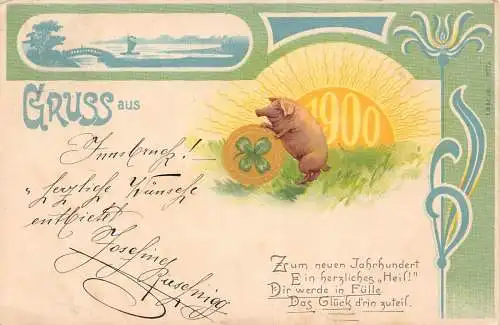 GRUSS aus
Innsbruck!
herzliche Wünsche
entbietet
Josefine
1900
Zum neuen Jahrhundert
Ein herzliches „Heil!"
Dir werde in Fülle
Das Glück d'rin zuteil.